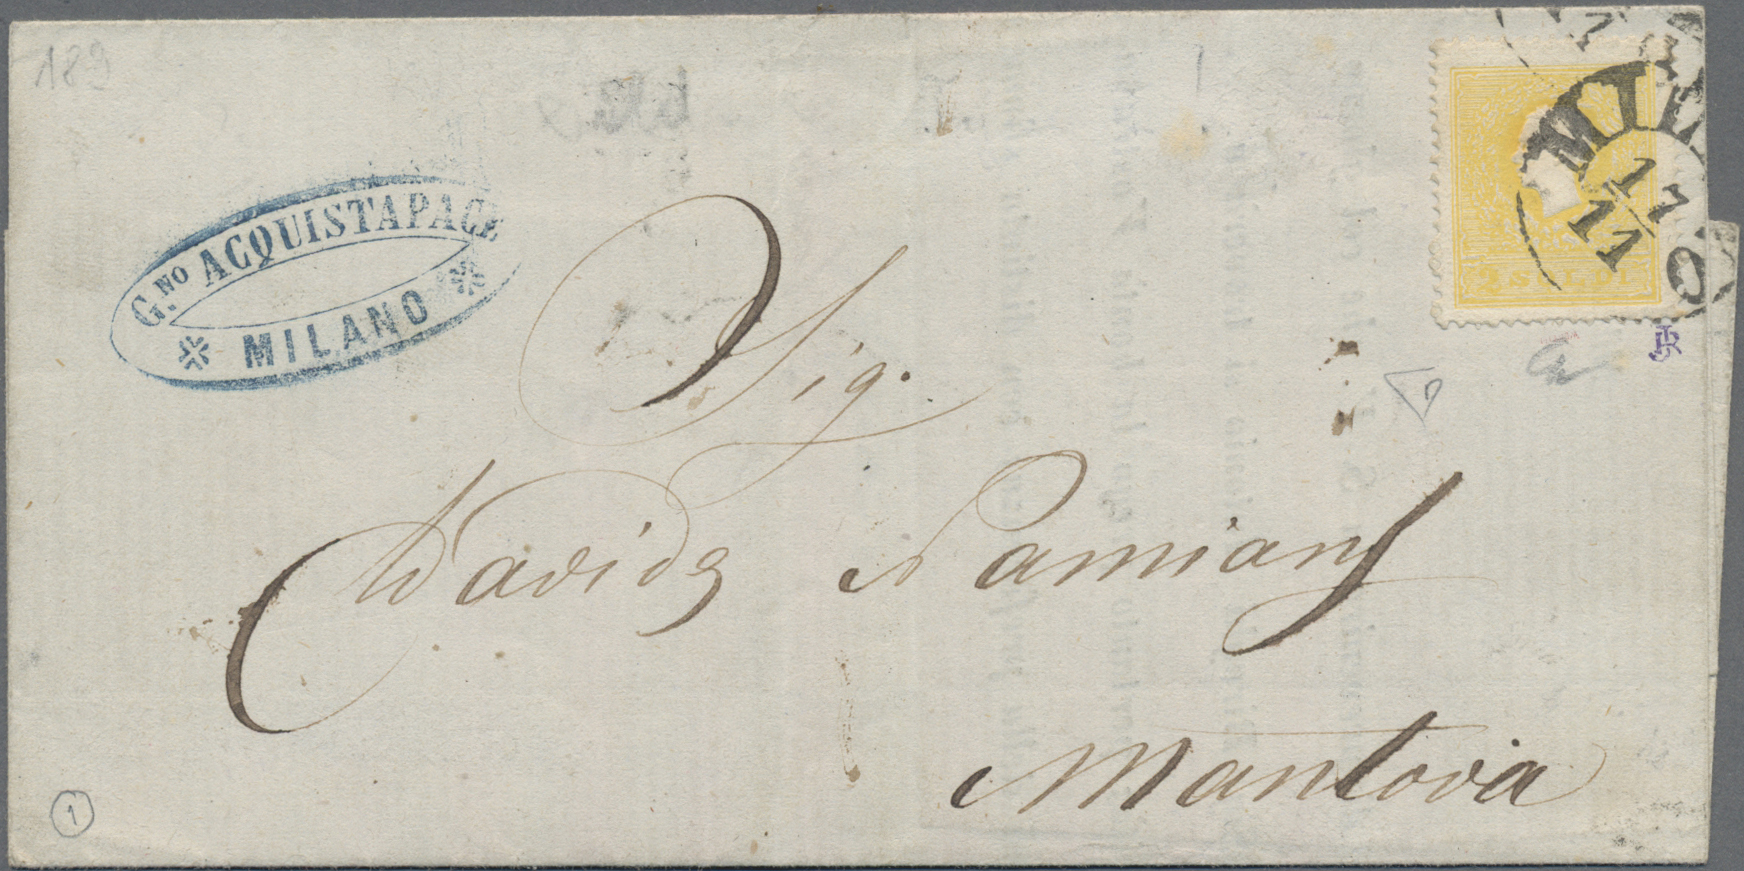 189
G.NO ACQUISTAPACE
MILANO
MILANO
17
11
2 SOLDI
Sig.
Davide Namias
Mantova
1